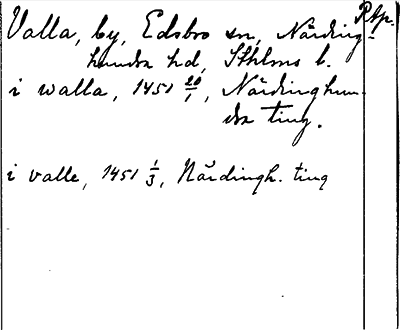 Valla, by, Edsbro sn, Närding-
hundra hd, Sthlms l.
i walla, 1451 20/1, Närdinghun-
dra ting.
i valle, 1451 1/3, Närdingh. ting